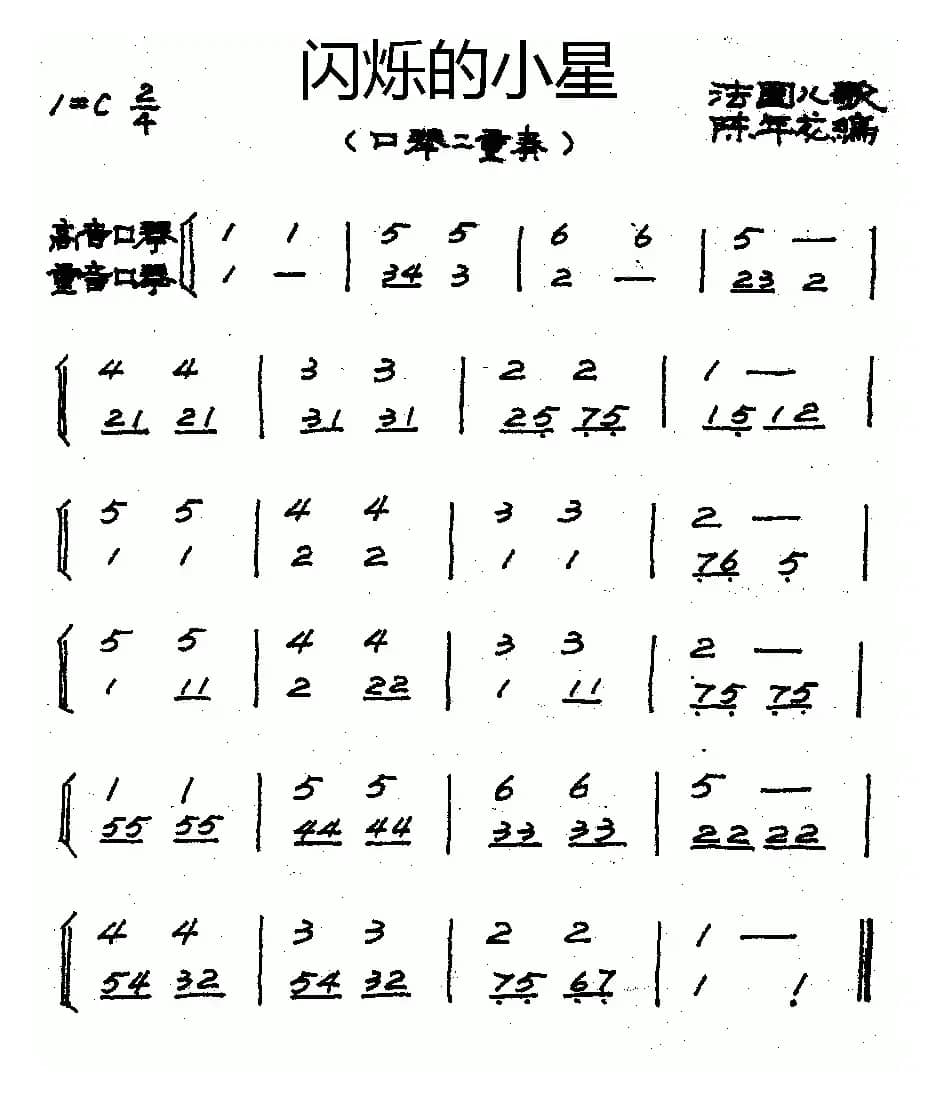 闪烁的小星
1=C 2/4
(口琴二重奏)
法国儿歌
陈年花编
高音口琴 1 1 | 5 5 | 6 6 | 5 — |
重音口琴 1 — | 34 3 | 2 — | 23 2 |
4 4 | 3 3 | 2 2 | 1 — |
21 21 | 31 31 | 25 75 | 15 12 |
5 5 | 4 4 | 3 3 | 2 — |
1 1 | 2 2 | 1 1 | 76 5 |
5 5 | 4 4 | 3 3 | 2 — |
1 11 | 2 22 | 1 11 | 75 75 |
1 1 | 5 5 | 6 6 | 5 — |
55 55 | 44 44 | 33 33 | 22 22 |
4 4 | 3 3 | 2 2 | 1 — ||
54 32 | 54 32 | 75 67 | 1 1 ||